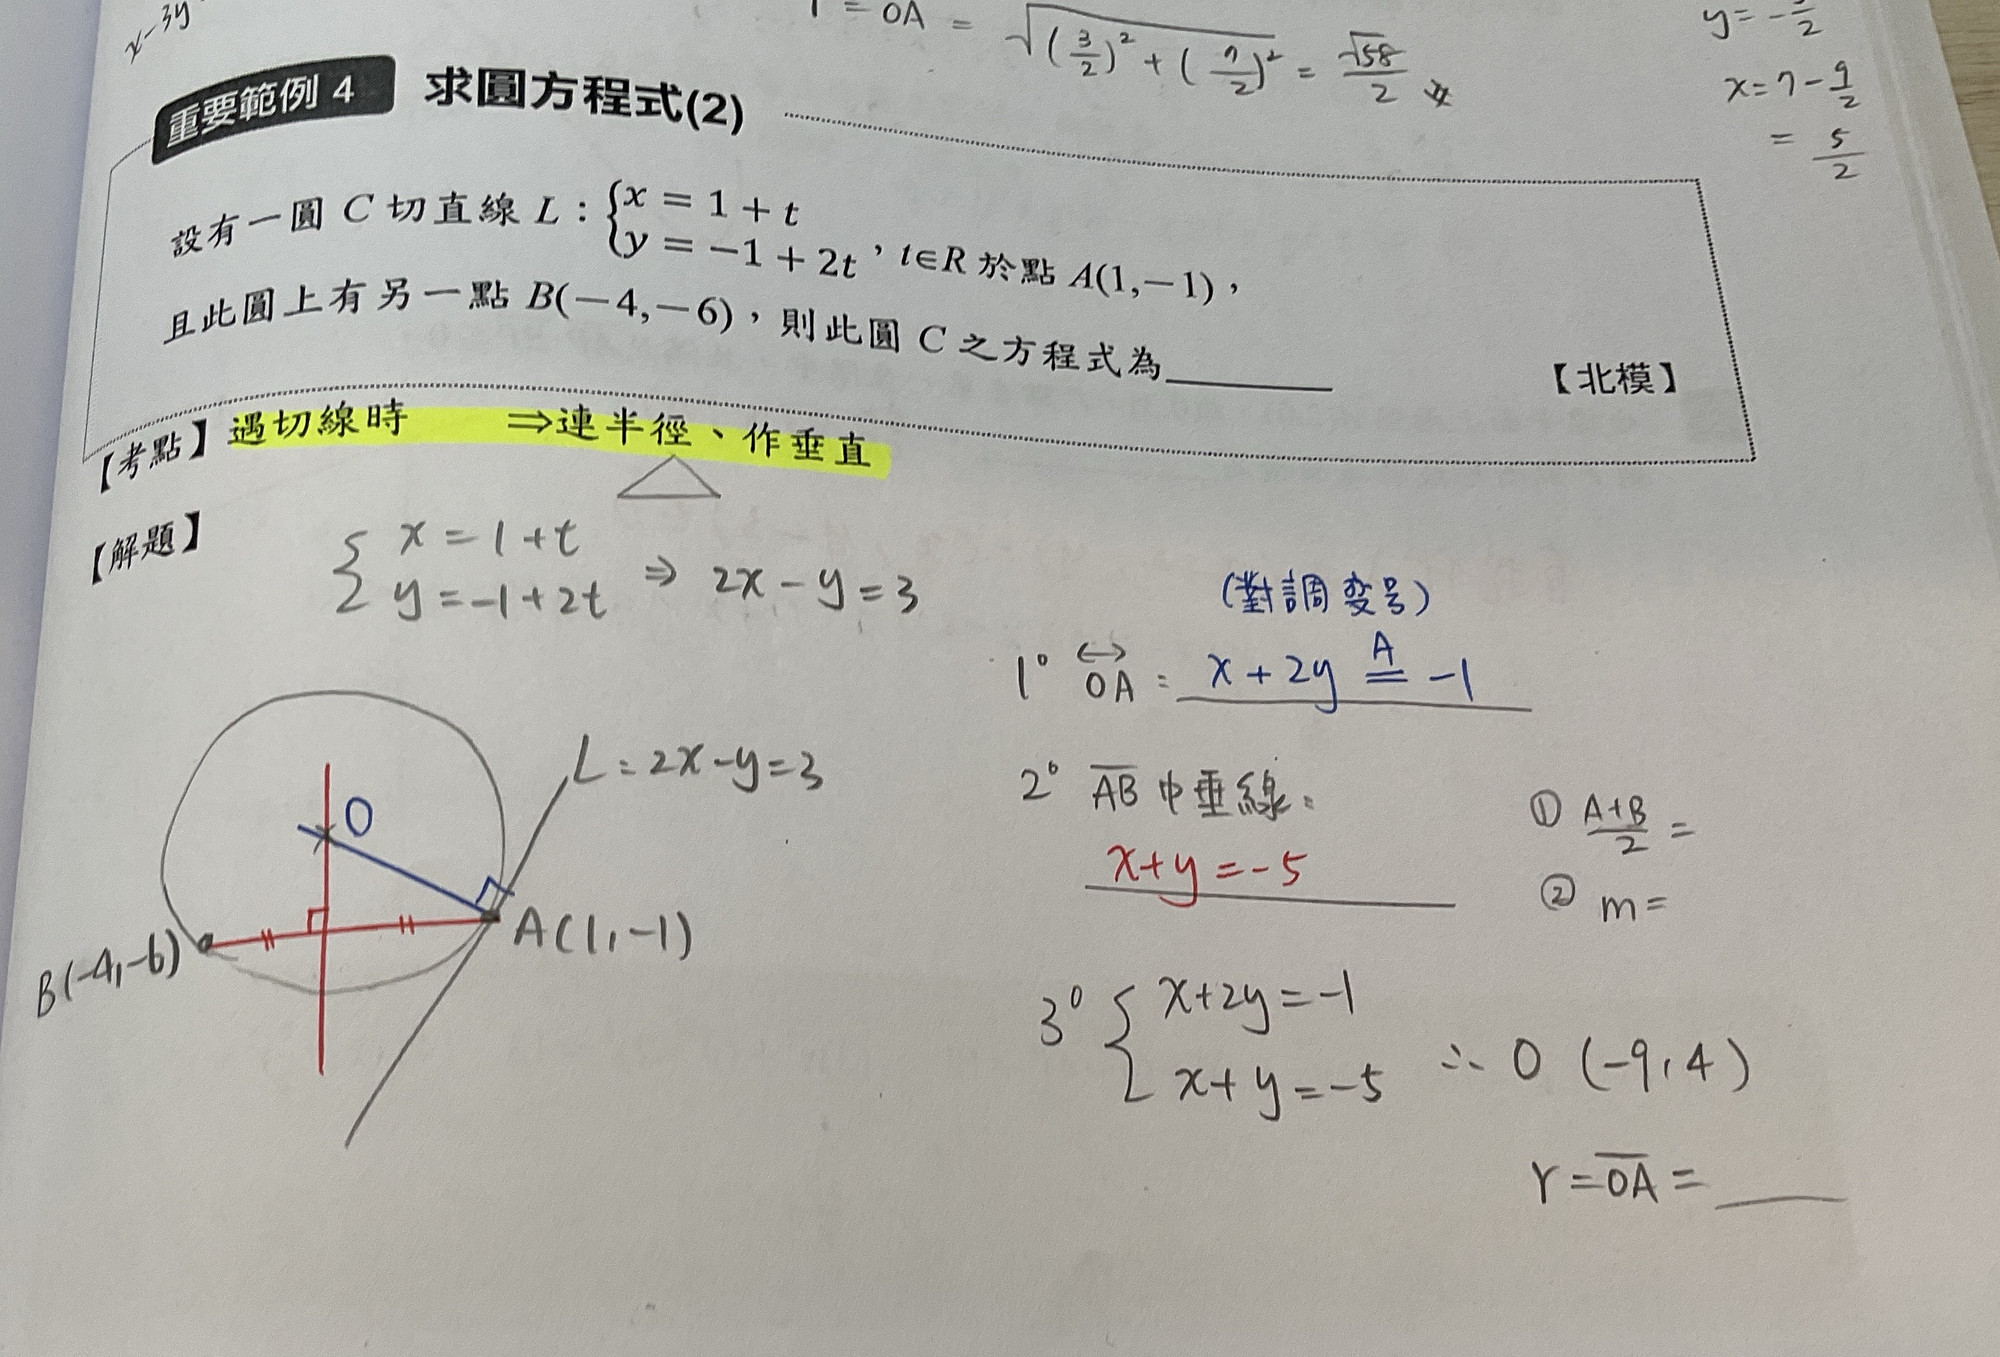 x-3y
r = OA = √((3/2)² + (7/2)²) = √58/2
y = -9/2
x = 7 - 9/2
= 5/2
重要範例 4 求圓方程式(2)
設有一圓 C 切直線 L：{x = 1 + t
y = −1 + 2t，t∈R 於點 A(1,−1)，
且此圓上有另一點 B(−4,−6)，則此圓 C 之方程式為______
【北模】
【考點】遇切線時 ⇒連半徑、作垂直
【解題】
{ x = 1 + t
y = -1 + 2t ⇒ 2x - y = 3
(對調变号)
1° OA : x + 2y =ᴬ -1
2° AB 中垂線：
x + y = -5
① A+B/2 =
② m =
3° { x + 2y = -1
x + y = -5 ∴ O (-9, 4)
r = OA = ____
L : 2x - y = 3
O
A(1, -1)
B(-4, -6)